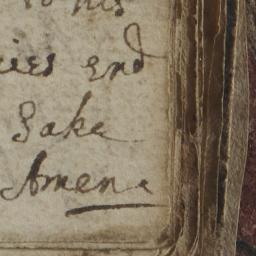 to his
ies end
Sake
Amen